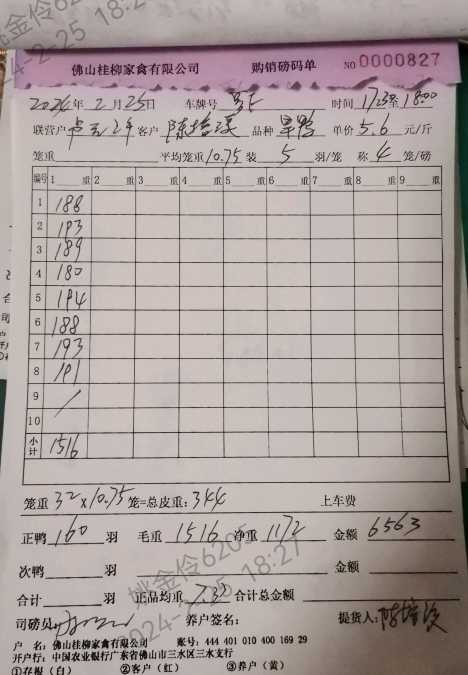 佛山桂柳家禽有限公司 购销磅码单 NO 0000827
2024年 2月25日 车牌号 时间 17:30至18:00
联营户 客户 陈培 品种 旱鸭 单价 5.6 元/斤
笼重 平均笼重 10.75 装 5 羽/笼 称 4 笼/磅
编号 1 重 2 重 3 重 4 重 5 重 6 重 7 重 8 重 9 重
1 188
2 193
3 189
4 180
5 194
6 188
7 193
8 191
9 /
10
小计 1516
笼重 32×10.75 笼=总皮重: 344 上车费
正鸭 160 羽 毛重 1516 净重 1172 金额 6563
次鸭 羽 金额
合计 羽 正品均重 7.32 合计总金额
司磅员 养户签名: 提货人: 陈培
户 名: 佛山桂柳家禽有限公司 账号: 444 401 010 400 169 29
开户行: 中国农业银行广东省佛山市三水区三水支行
①存根(白) ②客户(红) ③养户(黄)
姚金伶6205
2024-2-25 18:27